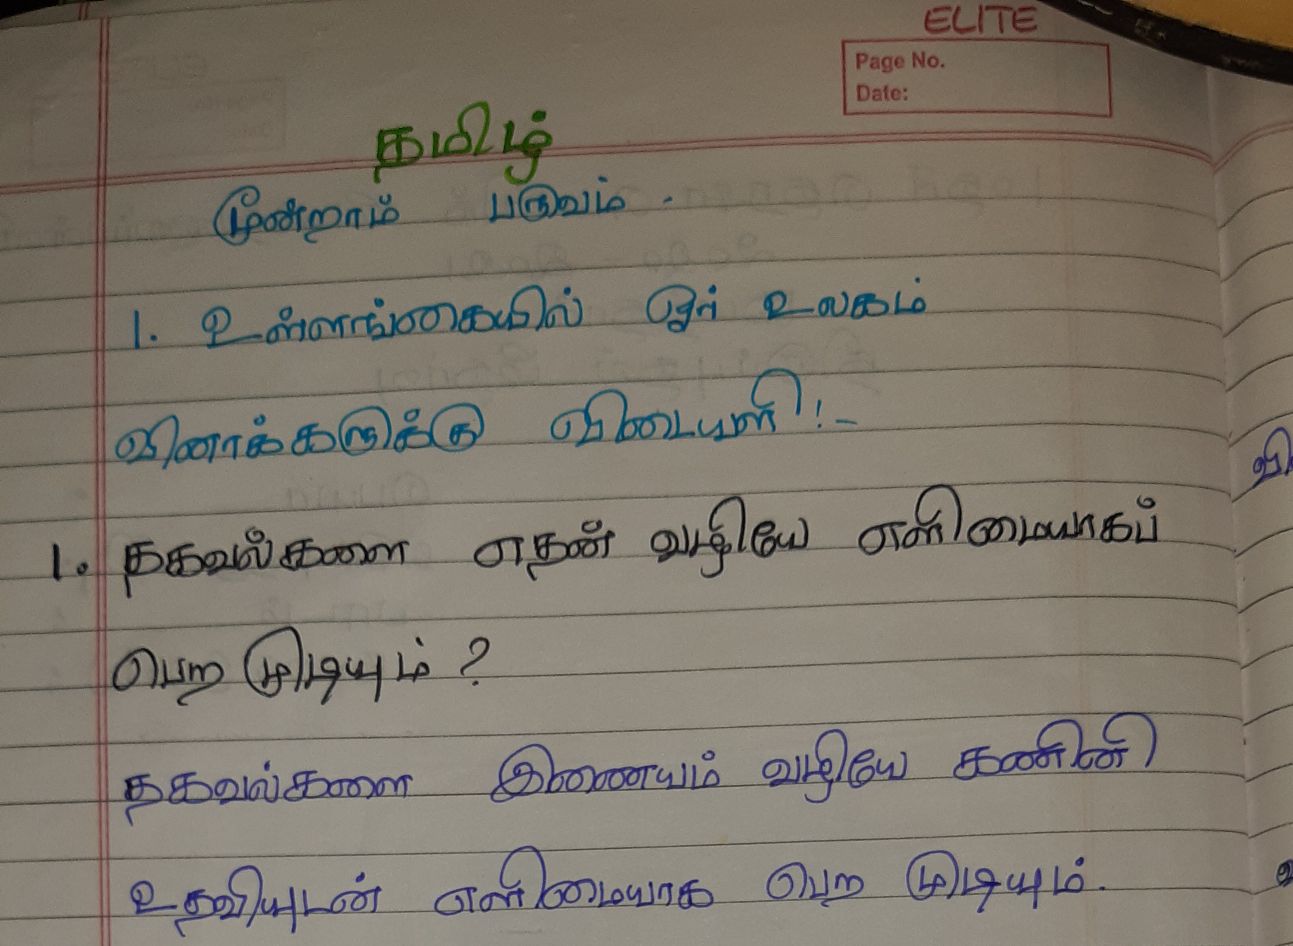 ELITE
Page No.
Date:
தமிழ்
மூன்றாம் பருவம்.
1. உள்ளங்கையில் ஓர் உலகம்
வினாக்களுக்கு விடையளி!-
1. தகவல்களை எதன் வழியே எளிமையாகப்
பெற முடியும்?
தகவல்களை இணையம் வழியே கணினி
உதவியுடன் எளிமையாக பெற முடியும்.